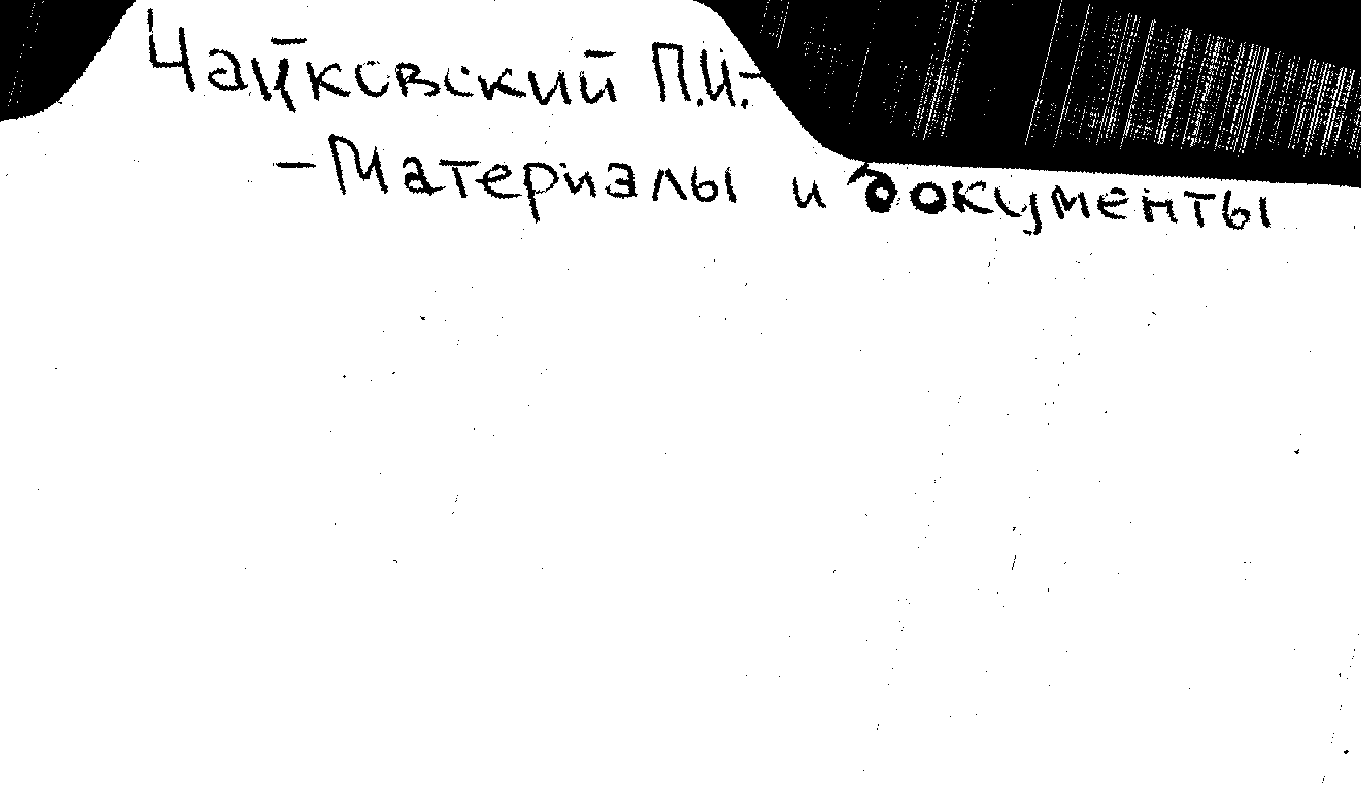 Чайковский П.И.-
-Материалы и документы